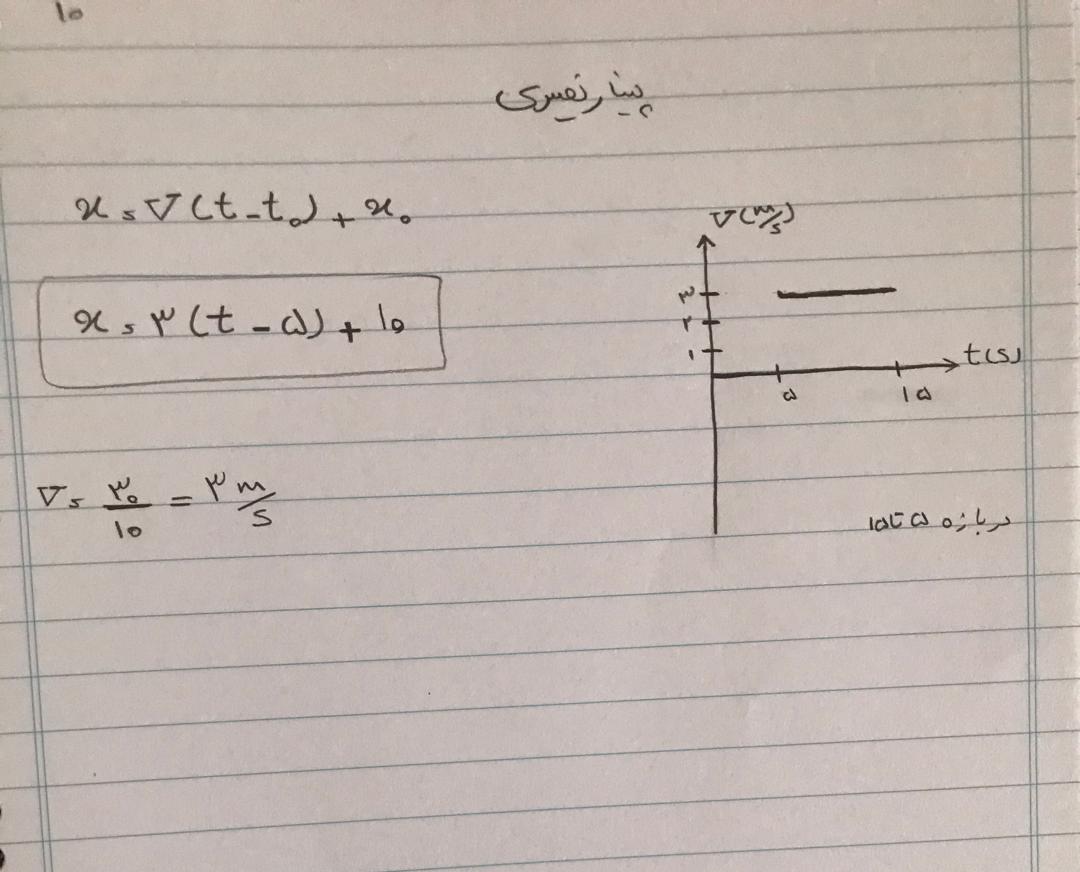 ۱۰
پینار نصیری
x = v(t - t₀) + x₀
x = ۳(t - ۵) + ۱۰
v = ۳۰/۱۰ = ۳ m/s
v(m/s)
۳
۲
۱
t(s)
۵ ۱۵
در بازه ۵ تا ۱۵